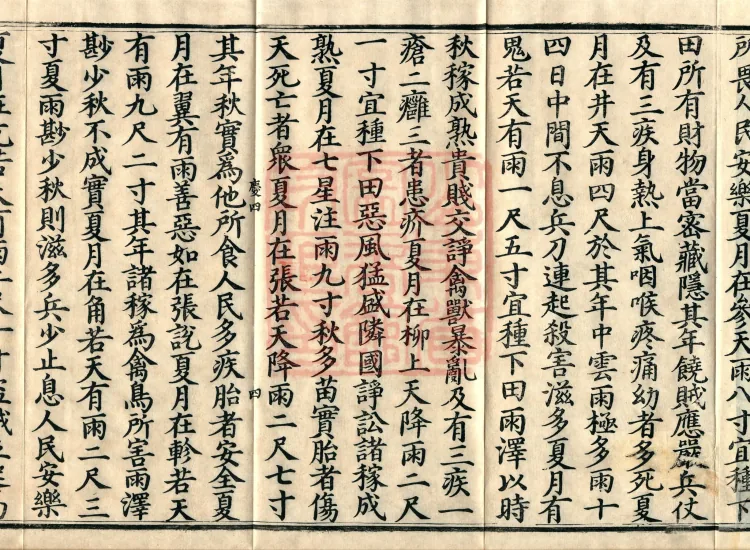 所畏人民安樂夏月在參天雨八寸宜種下
田所有財物當密藏隱其年饒賊應嚴兵仗
及有三疾身熱上氣咽喉疼痛幼者多死夏
月在井天雨四尺於其年中雲雨極多雨十
四日中間不息兵刀連起殺害滋多夏月有
鬼若天有雨一尺五寸宜種下田雨澤以時
秋稼成熟貴賤交諍禽獸暴亂及有三疾一
瘡二癰三者患疥夏月在柳上天降雨二尺
一寸宜種下田惡風猛盛隣國諍訟諸稼成
熟夏月在七星注雨九寸秋多苗實胎者傷
夭死亡者衆夏月在張若天降雨二尺七寸
慶四
四
其年秋實爲他所食人民多疾胎者安全夏
月在翼有雨善惡如在張說夏月在軫若天
有雨九尺二寸其年諸稼爲禽鳥所害雨澤
尠少秋不成實夏月在角若天有雨二尺三
寸夏雨尠少秋則滋多兵少止息人民安樂